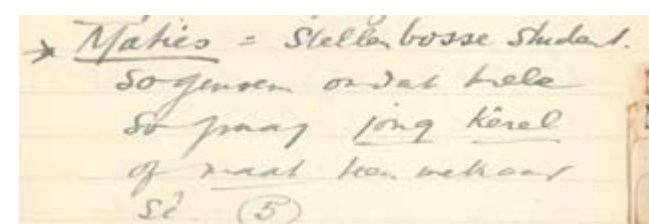 → Maties = Stellenbosse student.
So genoem omdat hele
so graag jong kêrel
of maat teen mekaar
sê. (5)